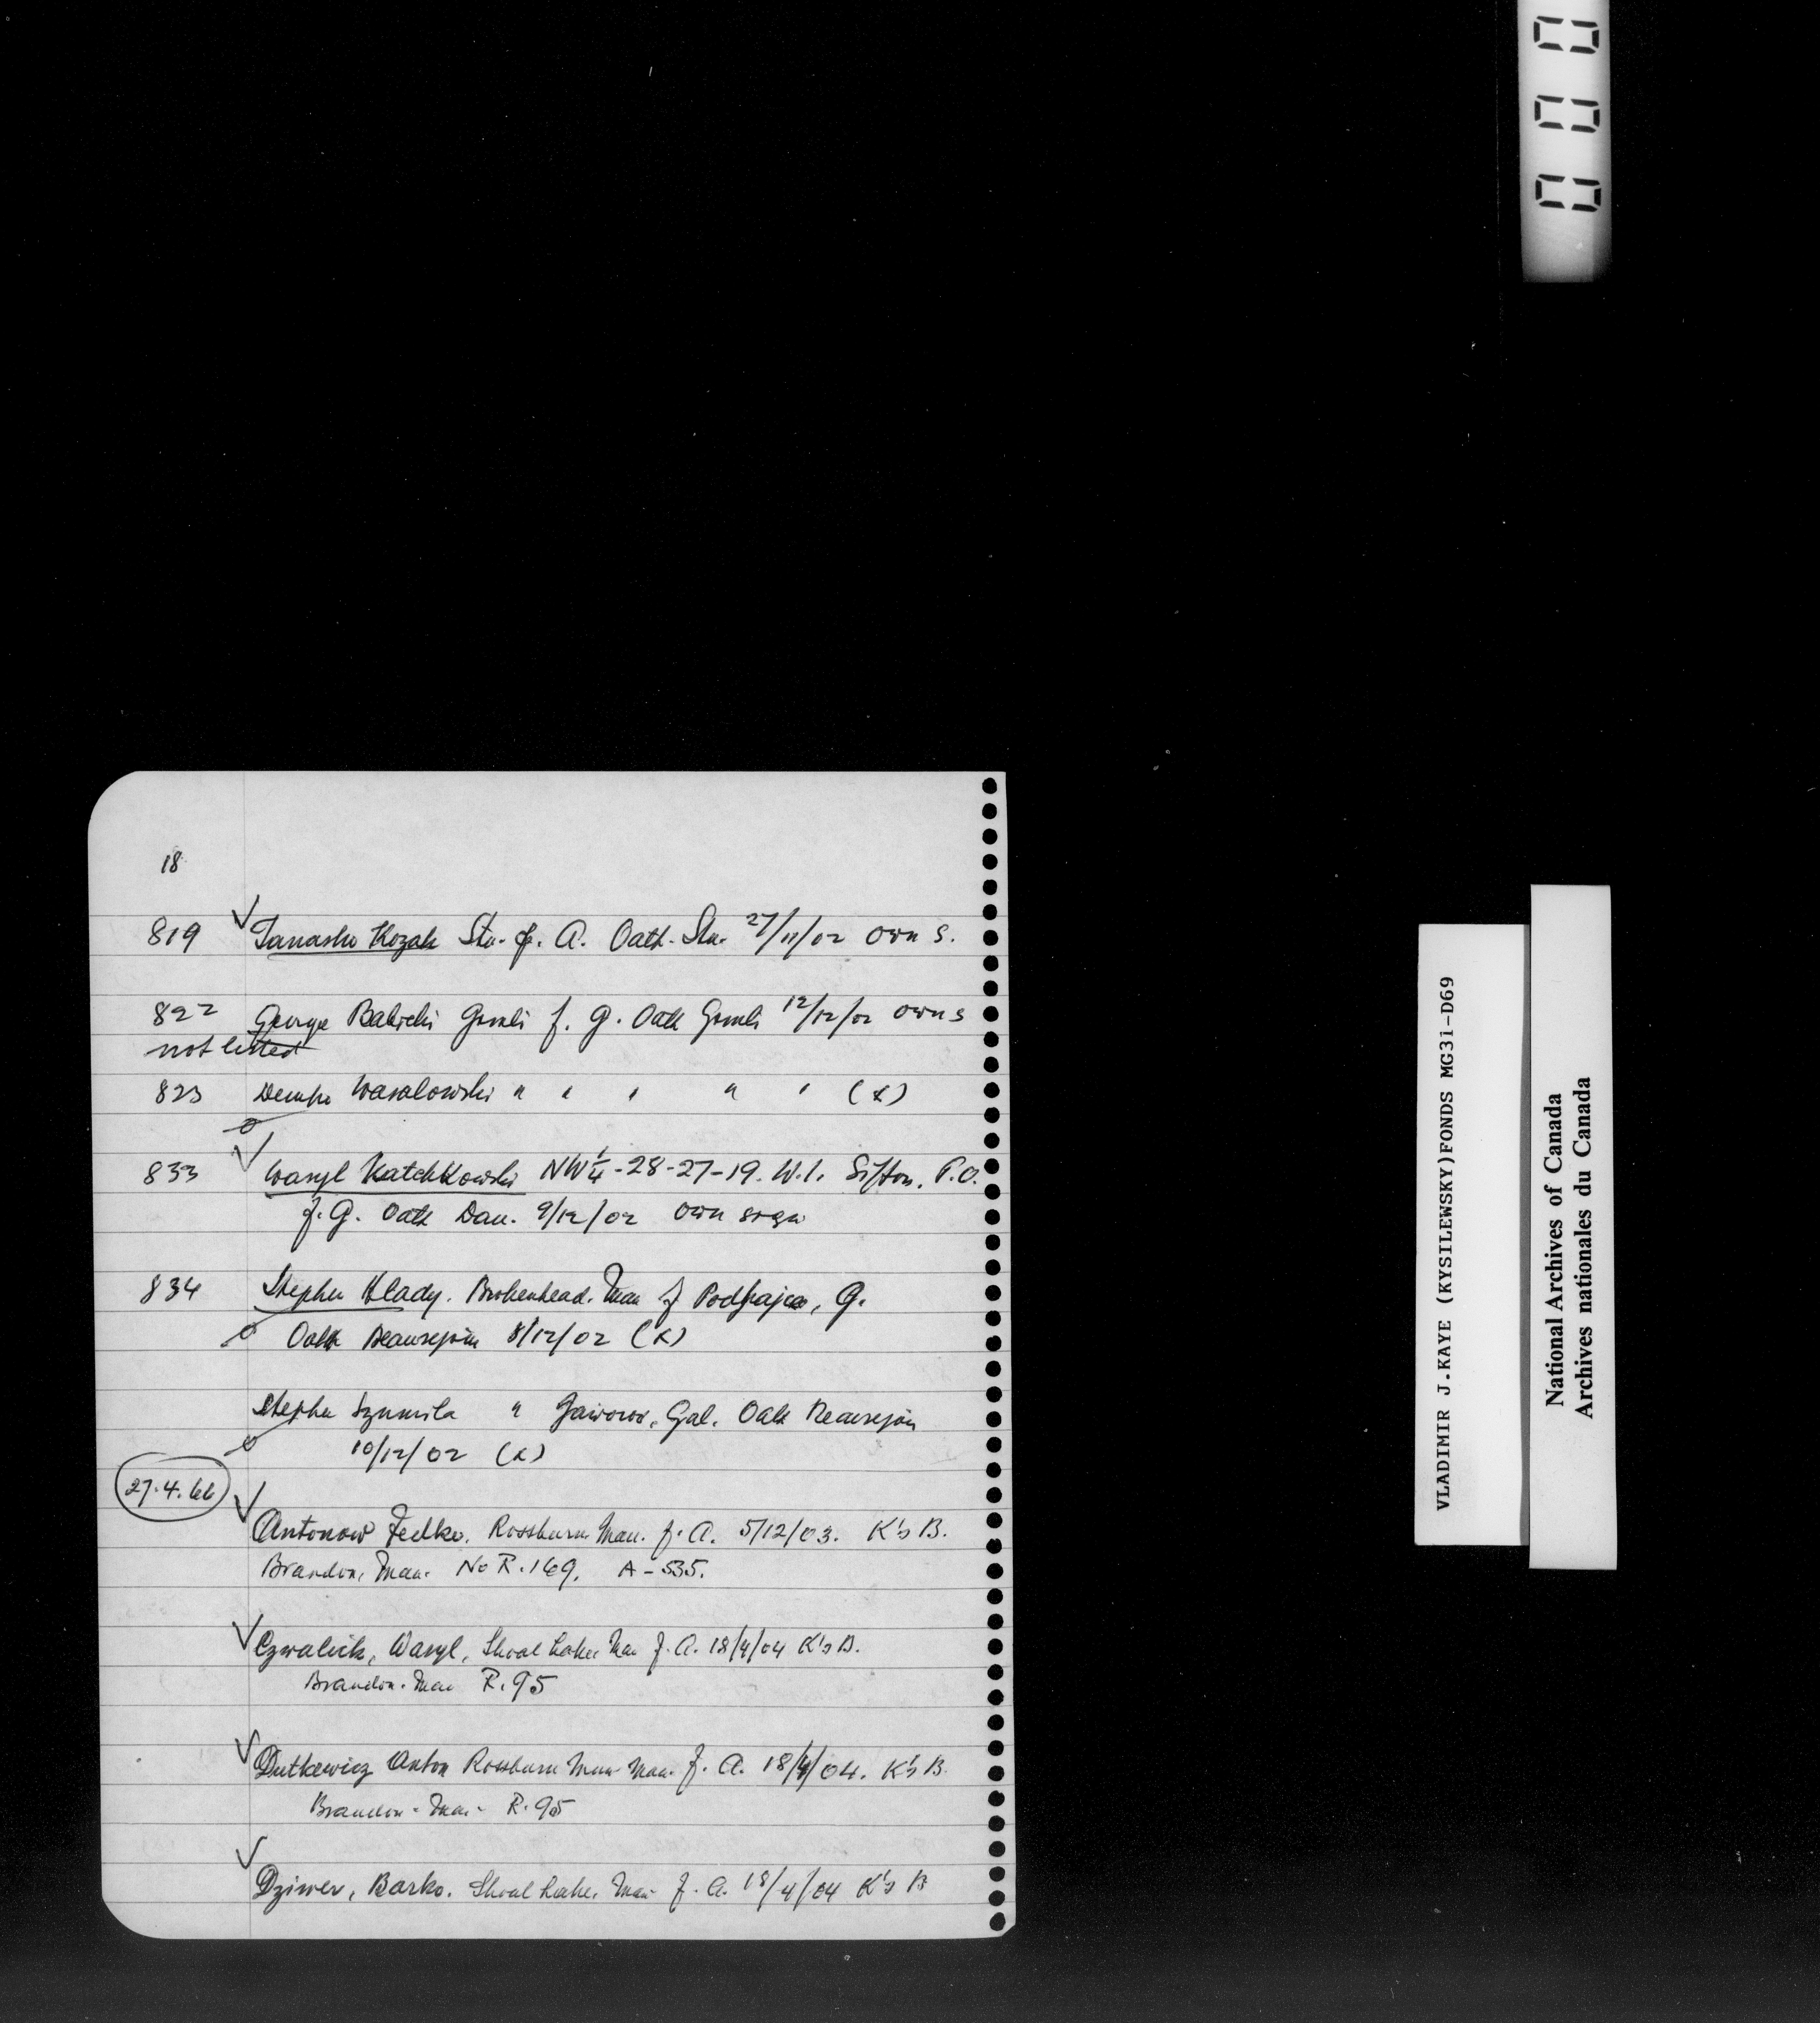 18
819 Tanasko Kozak Stu. f. A. Oath. Stu. 27/11/02 own s.
822 George Babicki Gimli f. G. Oath Gimli 12/12/02 own s
not listed
823 Demko Wasalowski " " " " " (x)
833 Wasyl Katchkowski NW¼-28-27-19. W.1. Sifton. P.O.
f. G. Oath Dau. 9/12/02 own sign
834 Stephen Hlady. Brokenhead. Man f Podhajce, G.
Oath Beausejour 8/12/02 (x)
Stephen Szumila " Jaworow, Gal. Oath Beausejour
10/12/02 (x)
27.4.66
Antonow Fedko. Rossburn. Man. f. A. 5/12/03. K's B.
Brandon, Man. No R.169. A-535.
Czwalick, Wasyl, Shoal Lake. Man f. A. 18/4/04 K's B.
Brandon. Man R.95
Dutkewicz Anton Rossburn Mun Man. f. A. 18/4/04. K's B.
Brandon - Man - R.95
Dziwer, Barko. Shoal Lake. Man f. A. 18/4/04 K's B
000
VLADIMIR J.KAYE (KYSILEWSKY)FONDS MG31-D69
National Archives of Canada
Archives nationales du Canada